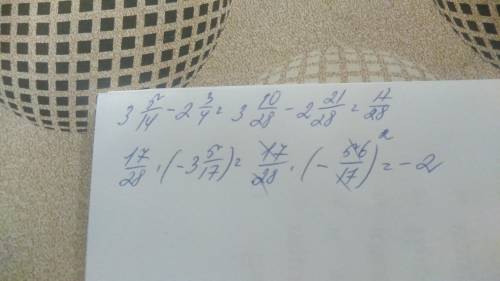 3 5/14 - 2 3/4 = 3 10/28 - 2 21/28 = 17/28
17/28 · (-3 5/17) = 17/28 · (-56/17)² = -2